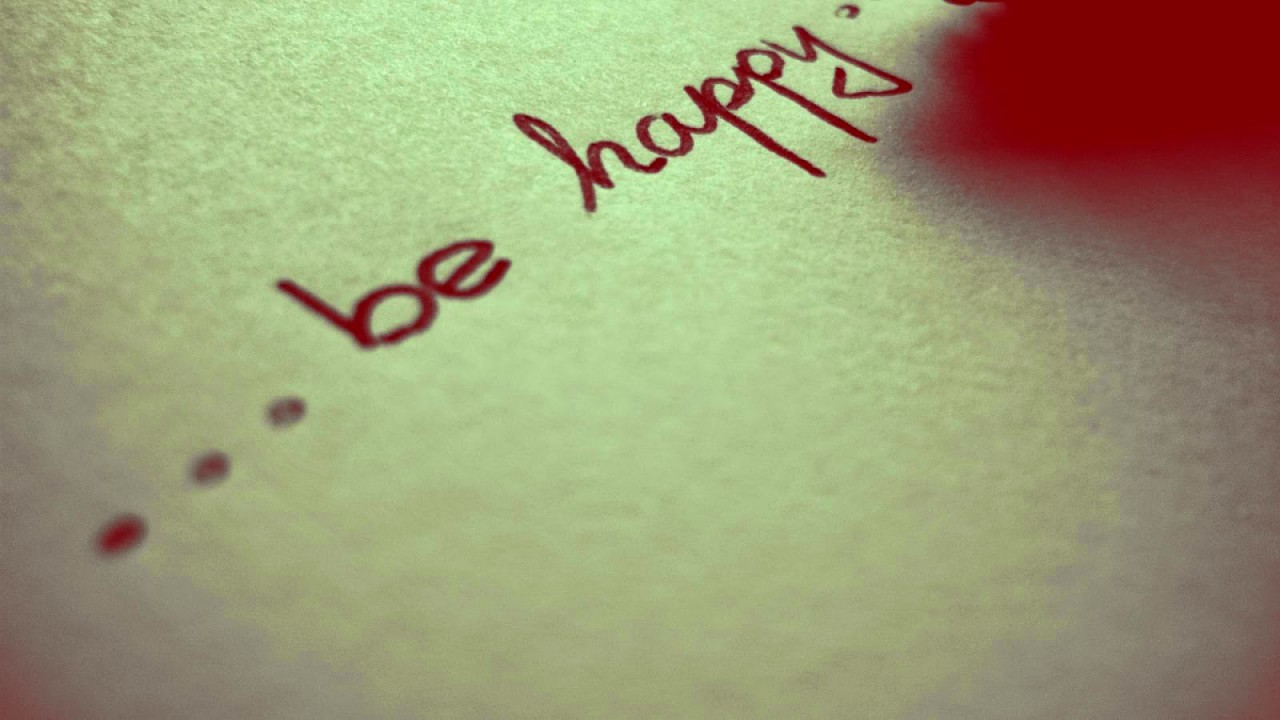 ...be happy.